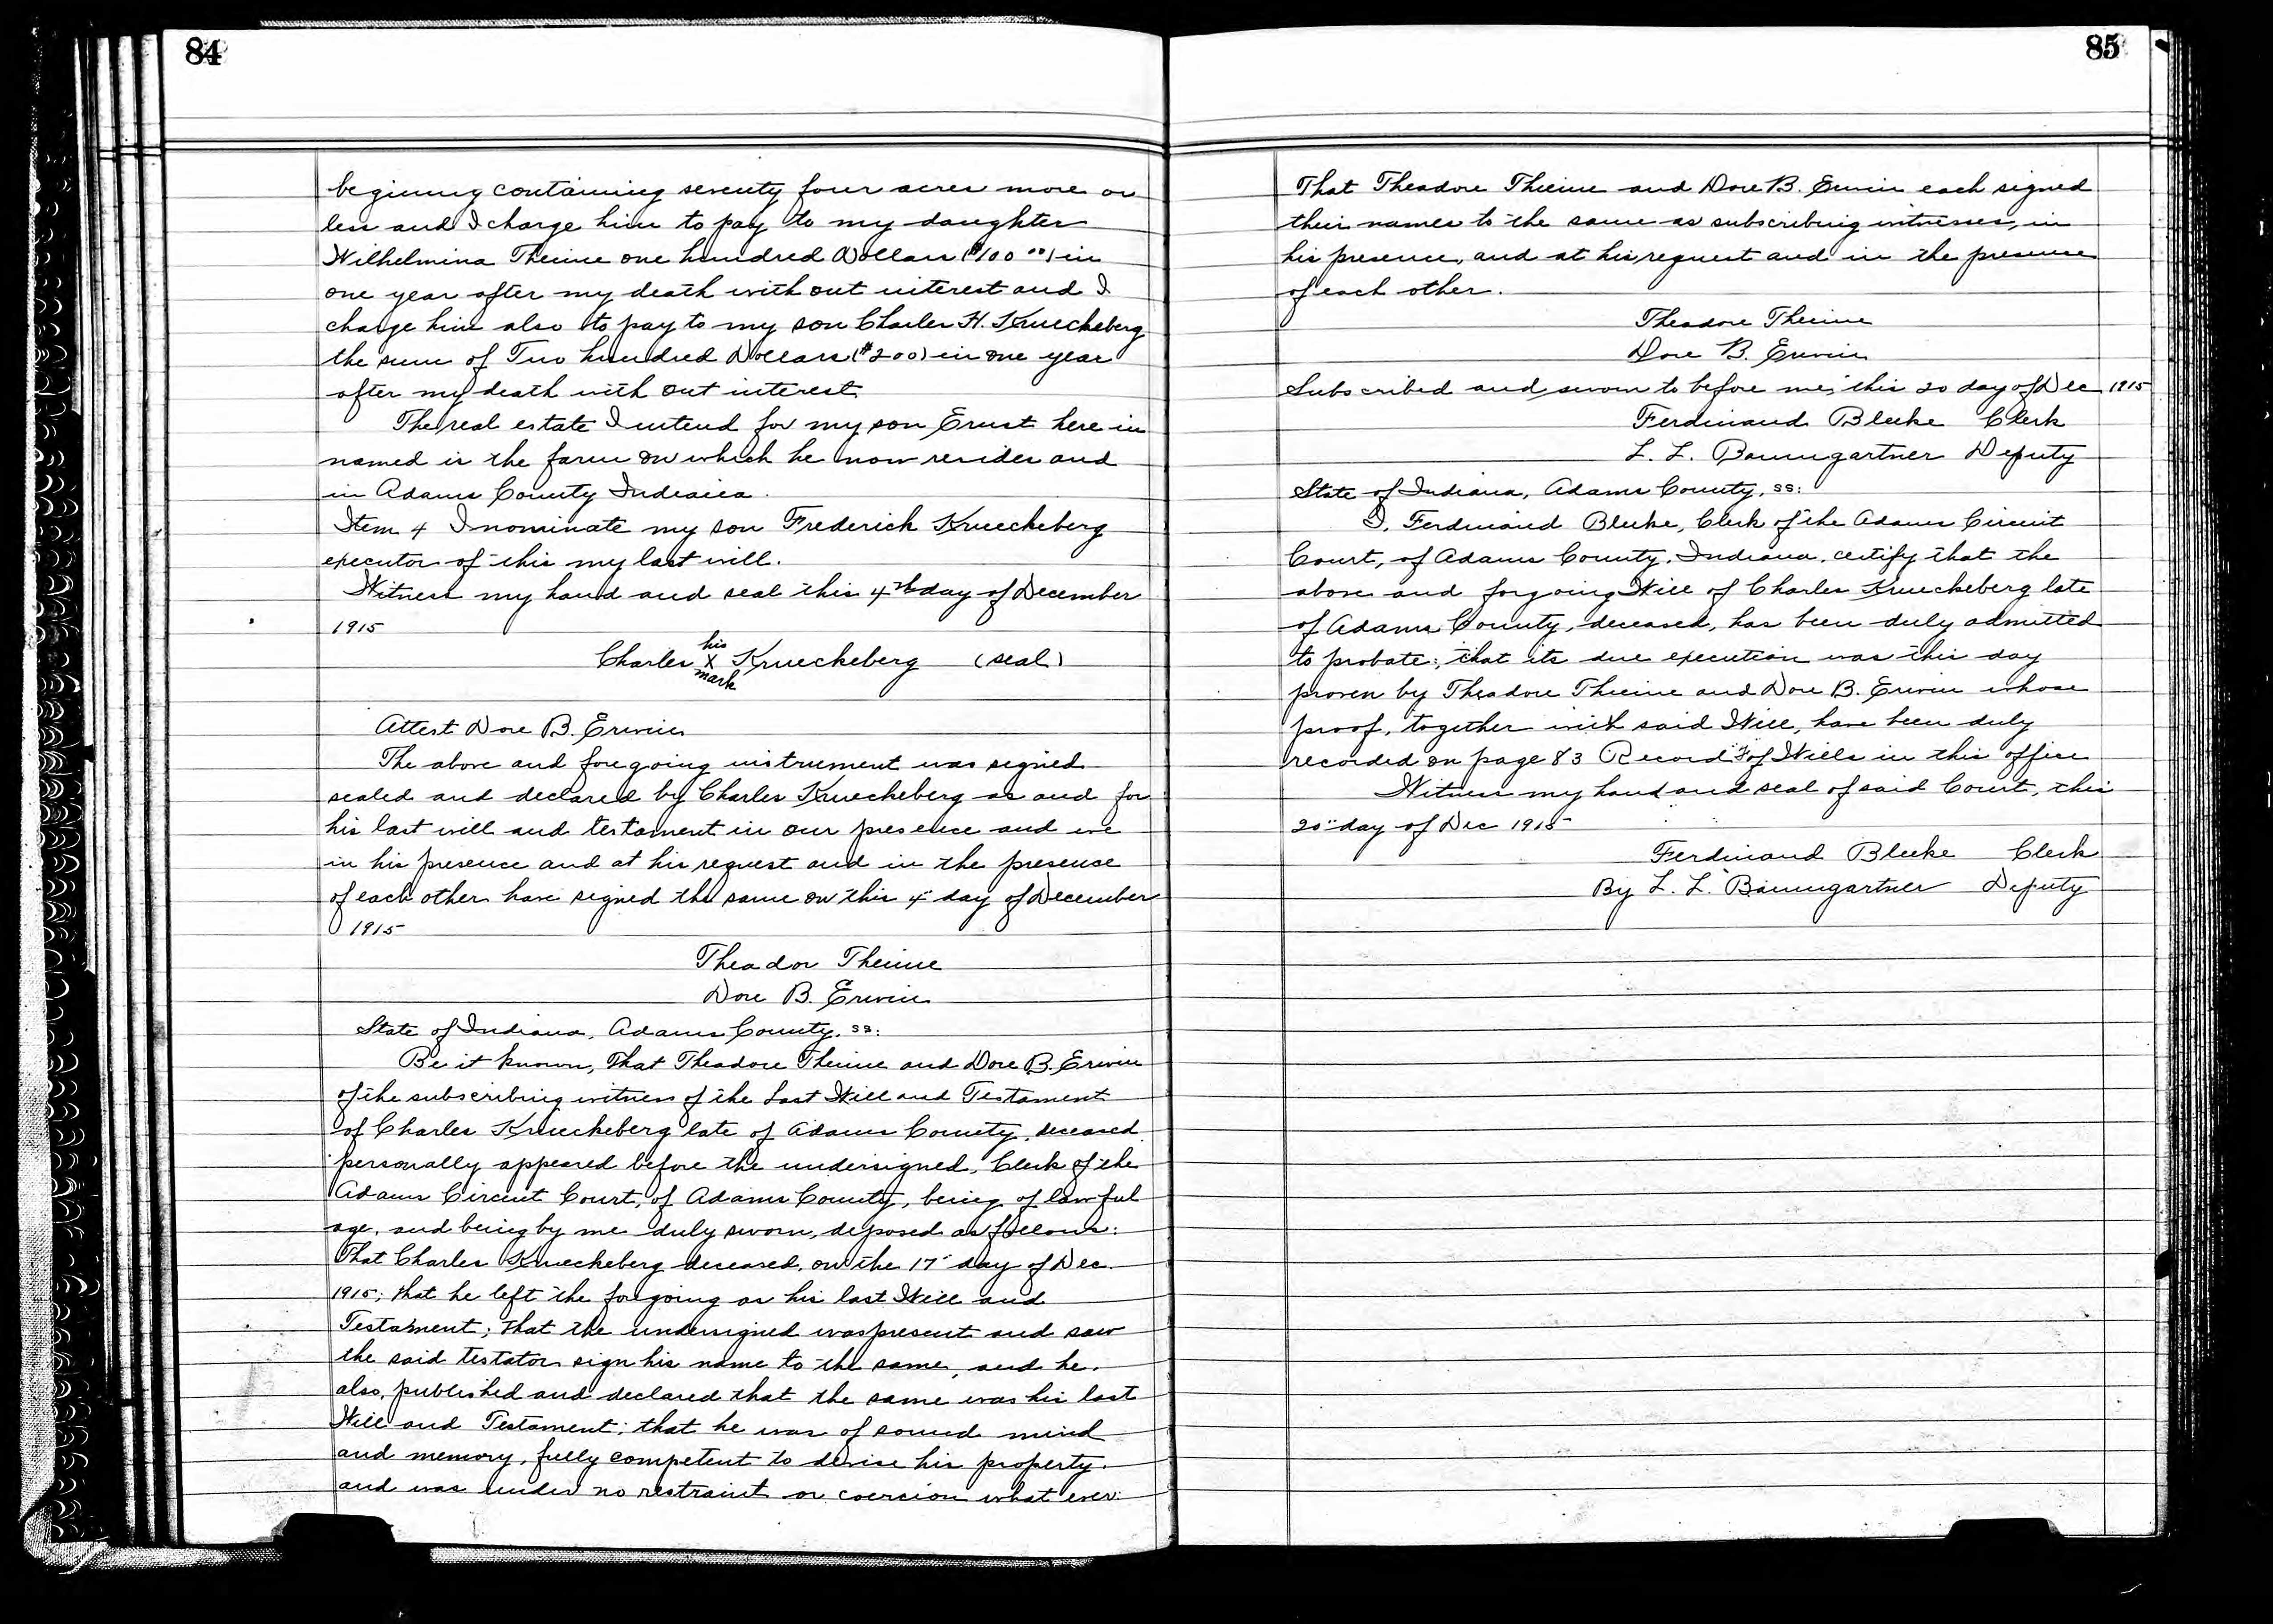 84
beginning containing seventy four acres more or
less and I charge him to pay to my daughter
Wilhelmina Thieme one hundred Dollars ($100 00) in
one year after my death with out interest and I
charge him also to pay to my son Charles H. Krueckeberg
the sum of Two hundred Dollars ($200) in one year
after my death with out interest
The real estate I intend for my son Ernst here in
named is the farm on which he now resides and
in Adams County Indiana.
Item 4 I nominate my son Frederick Krueckeberg
executor of this my last will.
Witness my hand and seal this 4th day of December
1915
his
Charles X Krueckeberg (seal)
mark
Attest Dore B. Erwin
The above and foregoing instrument was signed
sealed and declared by Charles Krueckeberg as and for
his last will and testament in our presence and we
in his presence and at his request and in the presence
of each other have signed the same on this 4" day of December
1915
Theador Thieme
Dore B. Erwin
State of Indiana, Adams County, ss:
Be it known, That Theadore Thieme and Dore B. Erwin
of the subscribing witness of the Last Will and Testament
of Charles Krueckeberg late of Adams County, deceased
personally appeared before the undersigned, Clerk of the
Adams Circuit Court, of Adams County, being of lawful
age, and being by me duly sworn, deposed as follows:
That Charles Krueckeberg deceased, on the 17" day of Dec.
1915; that he left the foregoing as his last Will and
Testament; that the undersigned was present and saw
the said testator sign his name to the same, and he
also, published and declared that the same was his last
Will and Testament; that he was of sound mind
and memory, fully competent to devise his property.
and was under no restraint or coercion what ever:
85
That Theadore Thieme and Dore B. Erwin each signed
their names to the same as subscribing witnesses, in
his presence, and at his request and in the presence
of each other.
Theadore Thieme
Dore B. Erwin
Subscribed and sworn to before me, this 20 day of Dec 1915
Ferdinand Bleeke Clerk
L. L. Baumgartner Deputy
State of Indiana, Adams County, ss:
I, Ferdinand Bleeke, Clerk of the Adams Circuit
Court, of Adams County, Indiana, certify that the
above and forgoing Will of Charles Krueckeberg late
of Adams County, deceased, has been duly admitted
to probate; that its due execution was this day
proven by Theadore Thieme and Dore B. Erwin whose
proof, together with said Will, have been duly
recorded on page 83 Record "F" of Wills in this office
Witness my hand and seal of said Court, this
20" day of Dec 1915
Ferdinand Bleeke Clerk
By L. L. Baumgartner Deputy